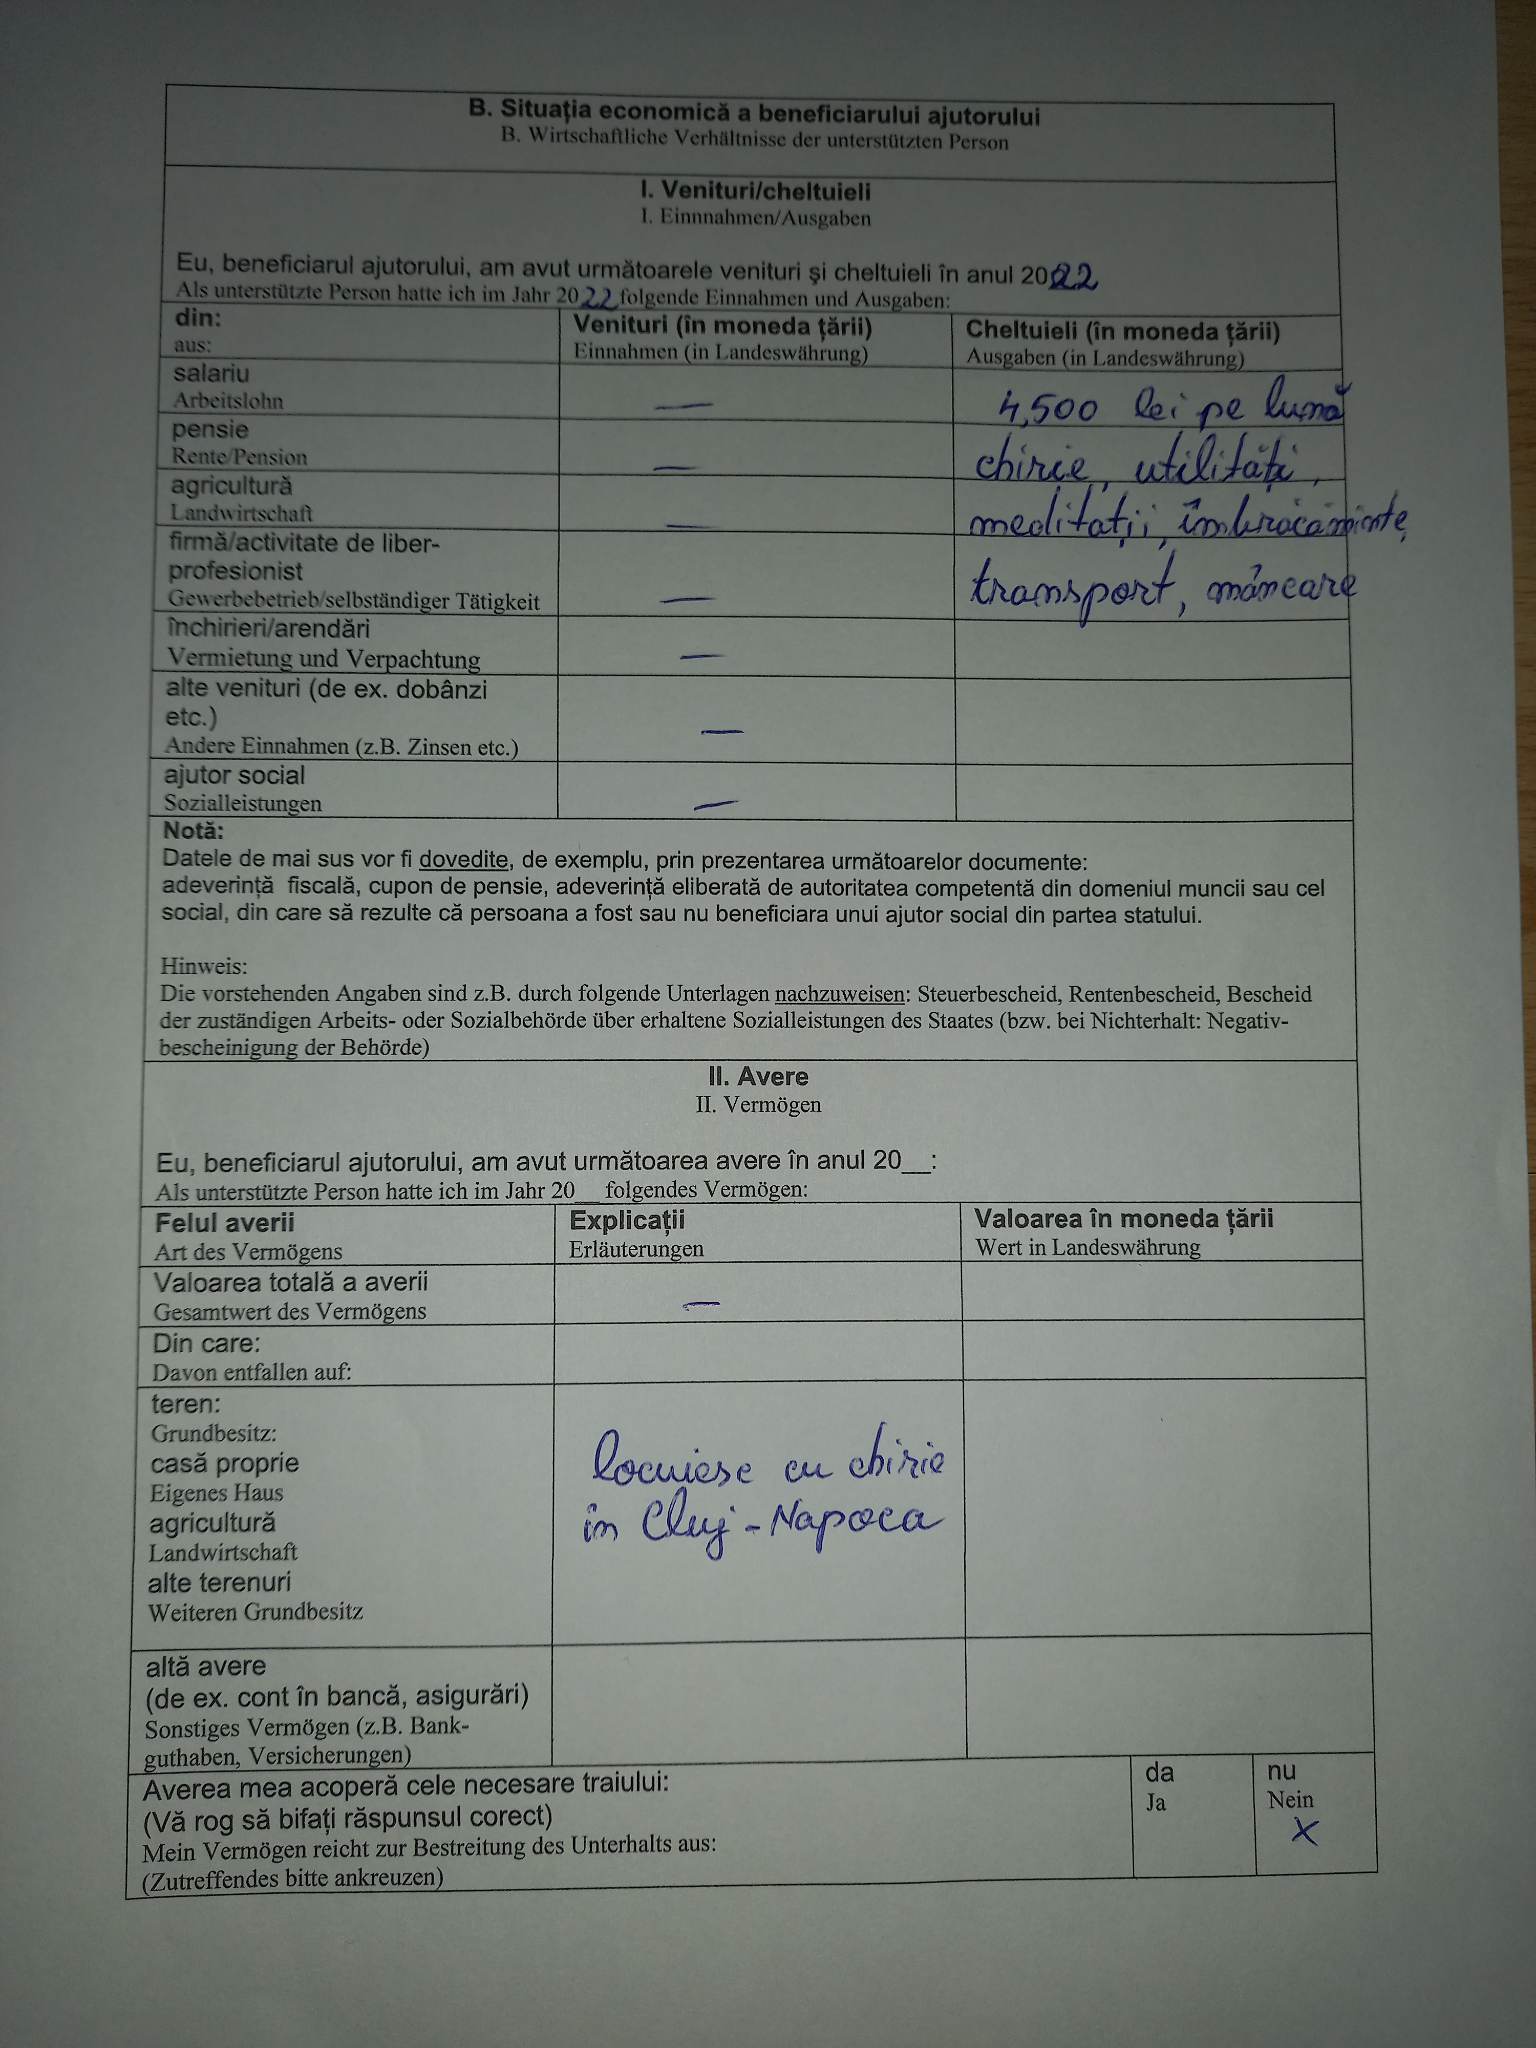 B. Situația economică a beneficiarului ajutorului
B. Wirtschaftliche Verhältnisse der unterstützten Person
I. Venituri/cheltuieli
I. Einnnahmen/Ausgaben
Eu, beneficiarul ajutorului, am avut următoarele venituri şi cheltuieli în anul 2022
Als unterstützte Person hatte ich im Jahr 2022 folgende Einnahmen und Ausgaben:
din:
aus:
Venituri (în moneda țării)
Einnahmen (in Landeswährung)
Cheltuieli (în moneda țării)
Ausgaben (in Landeswährung)
salariu
Arbeitslohn
—
4,500 lei pe lună
pensie
Rente/Pension
—
chirie, utilități,
agricultură
Landwirtschaft
—
meditații, îmbrăcăminte,
firmă/activitate de liber-
profesionist
Gewerbebetrieb/selbständiger Tätigkeit
—
transport, mâncare
închirieri/arendări
Vermietung und Verpachtung
—
alte venituri (de ex. dobânzi
etc.)
Andere Einnahmen (z.B. Zinsen etc.)
—
ajutor social
Sozialleistungen
—
Notă:
Datele de mai sus vor fi dovedite, de exemplu, prin prezentarea următoarelor documente:
adeverință fiscală, cupon de pensie, adeverință eliberată de autoritatea competentă din domeniul muncii sau cel
social, din care să rezulte că persoana a fost sau nu beneficiara unui ajutor social din partea statului.
Hinweis:
Die vorstehenden Angaben sind z.B. durch folgende Unterlagen nachzuweisen: Steuerbescheid, Rentenbescheid, Bescheid
der zuständigen Arbeits- oder Sozialbehörde über erhaltene Sozialleistungen des Staates (bzw. bei Nichterhalt: Negativ-
bescheinigung der Behörde)
II. Avere
II. Vermögen
Eu, beneficiarul ajutorului, am avut următoarea avere în anul 20__:
Als unterstützte Person hatte ich im Jahr 20__ folgendes Vermögen:
Felul averii
Art des Vermögens
Explicații
Erläuterungen
Valoarea în moneda țării
Wert in Landeswährung
Valoarea totală a averii
Gesamtwert des Vermögens
—
Din care:
Davon entfallen auf:
teren:
Grundbesitz:
casă proprie
Eigenes Haus
agricultură
Landwirtschaft
alte terenuri
Weiteren Grundbesitz
locuiesc cu chirie
în Cluj-Napoca
altă avere
(de ex. cont în bancă, asigurări)
Sonstiges Vermögen (z.B. Bank-
guthaben, Versicherungen)
Averea mea acoperă cele necesare traiului:
(Vă rog să bifați răspunsul corect)
Mein Vermögen reicht zur Bestreitung des Unterhalts aus:
(Zutreffendes bitte ankreuzen)
da
Ja
nu
Nein
X